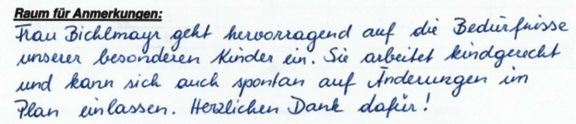 Raum für Anmerkungen:
Frau Bichlmayr geht hervorragend auf die Bedürfnisse
unserer besonderen Kinder ein. Sie arbeitet kindgerecht
und kann sich auch spontan auf Änderungen im
Plan einlassen. Herzlichen Dank dafür!